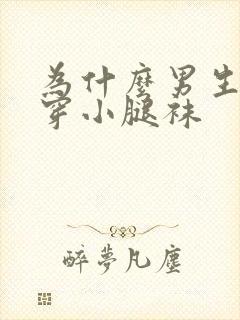 為什麼男生
穿小腿袜
醉夢凡塵